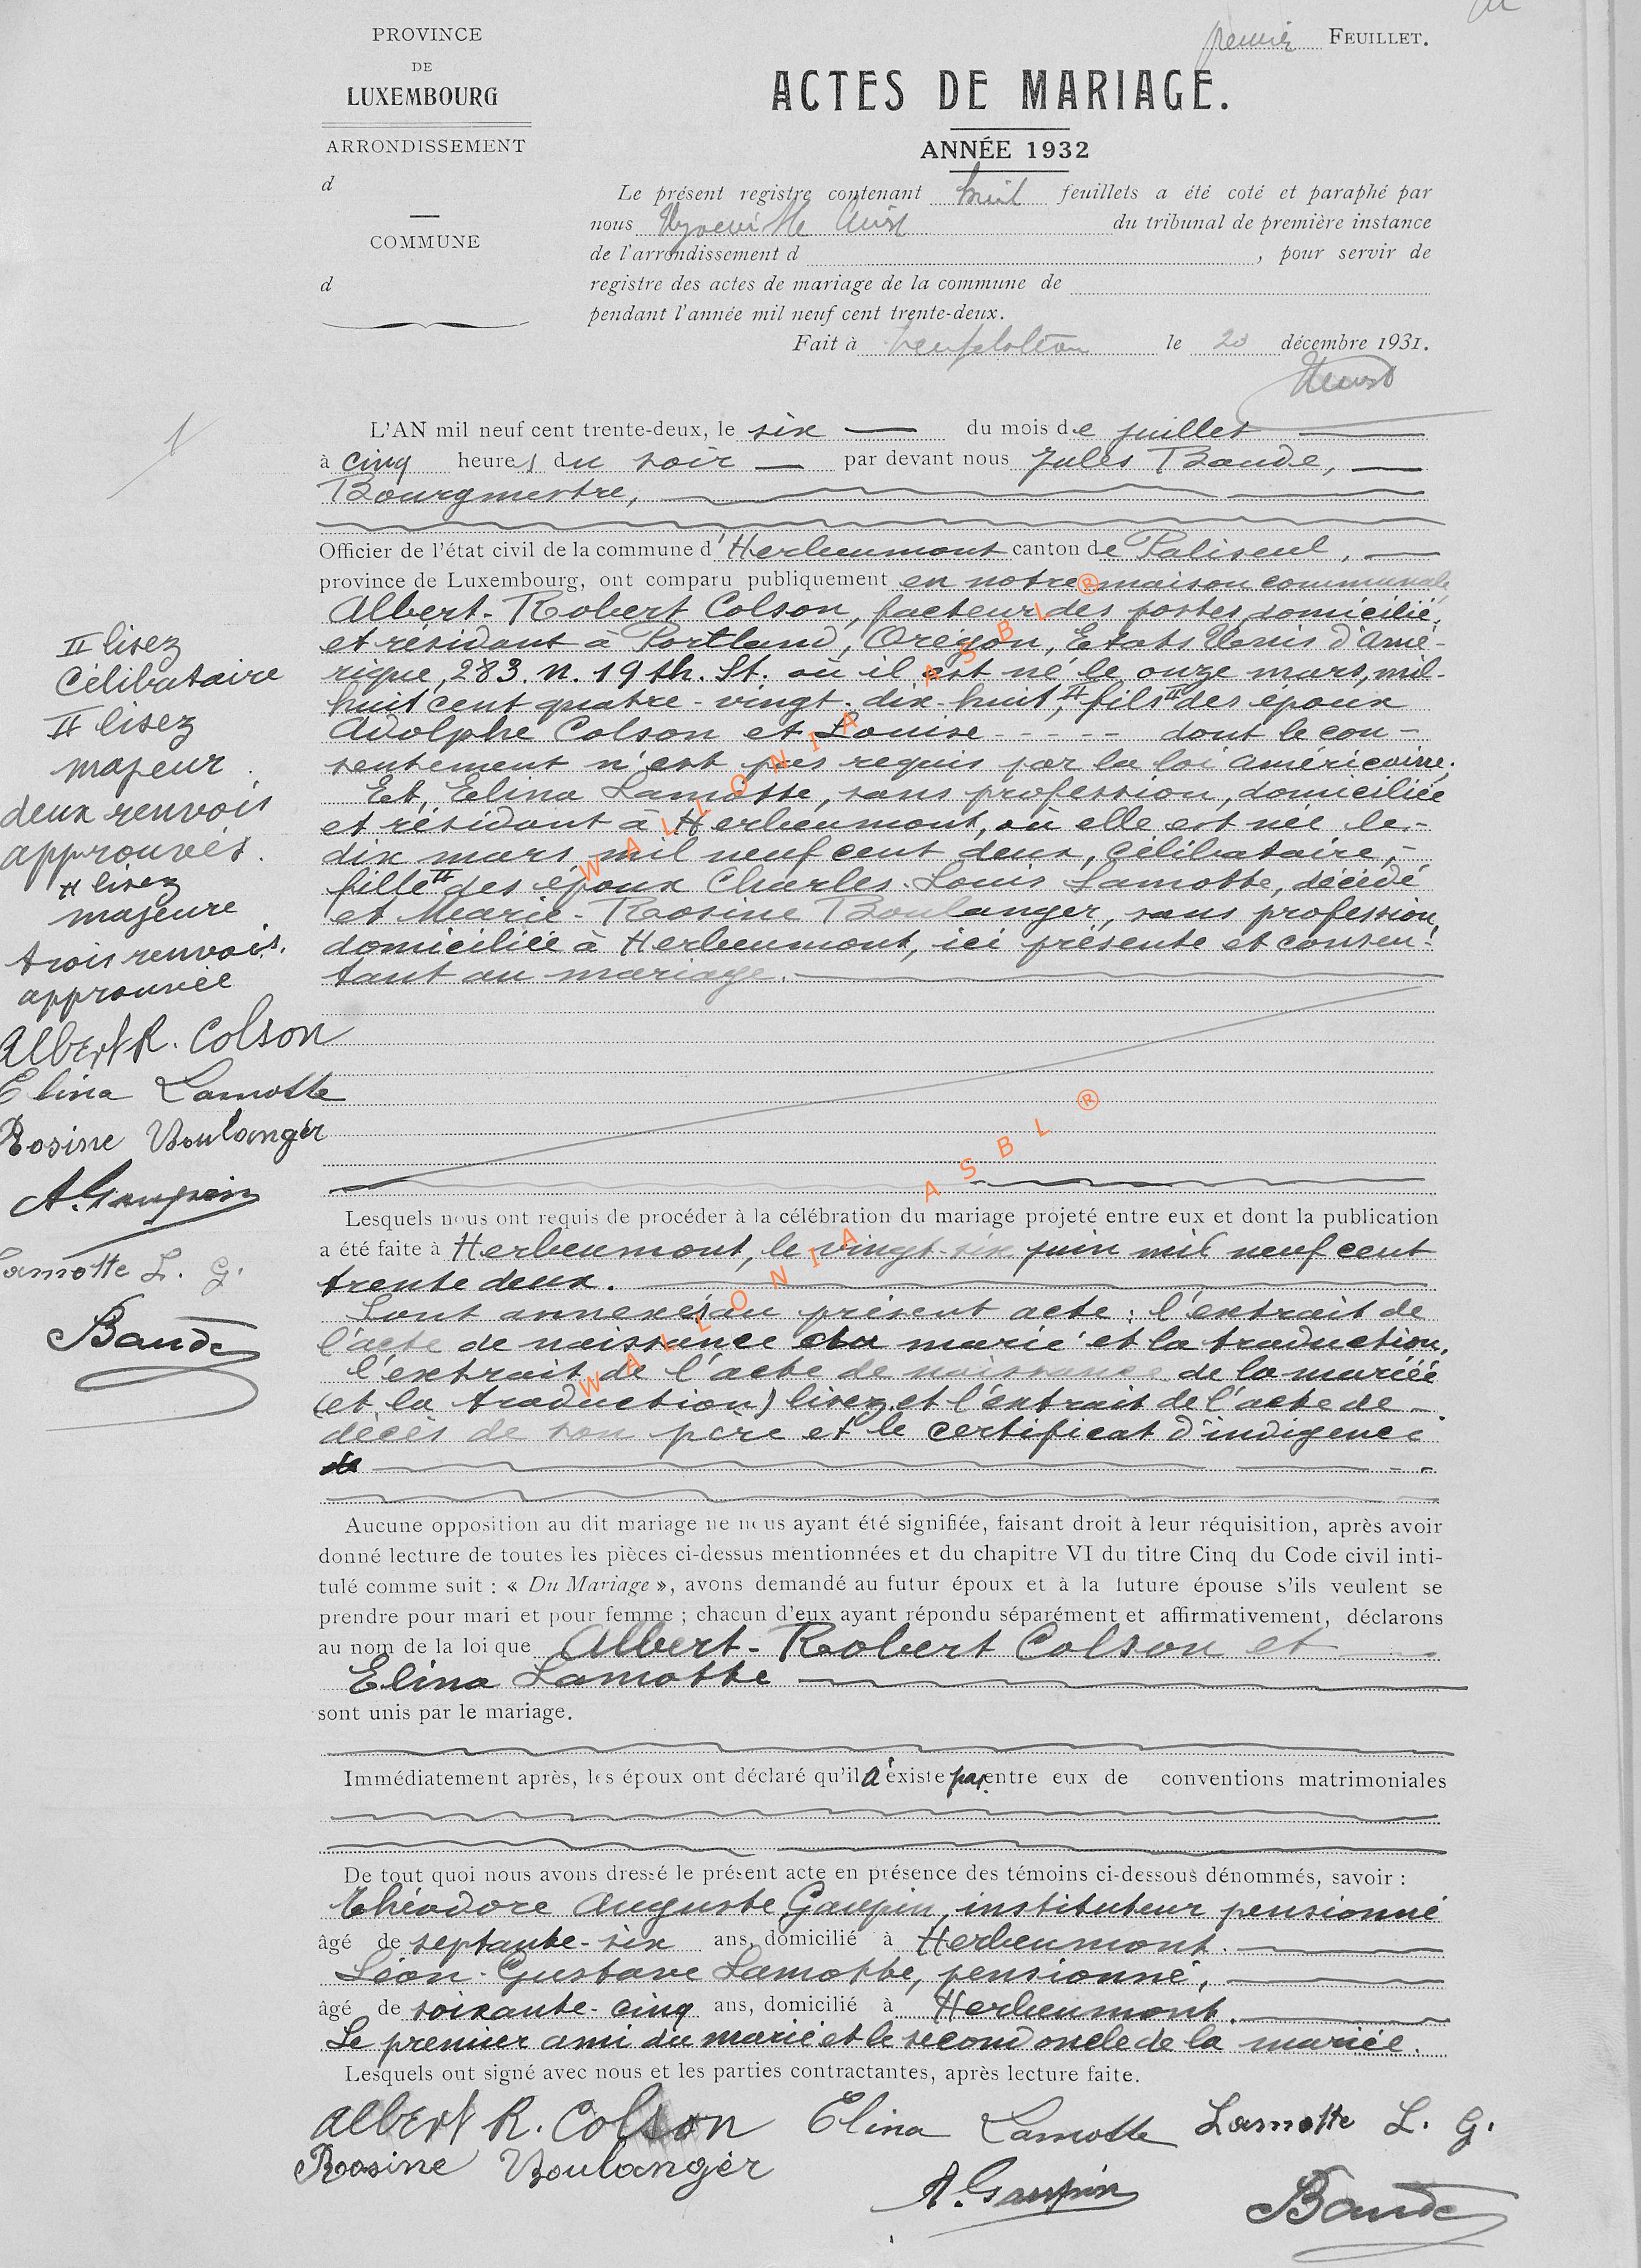 PROVINCE
DE
LUXEMBOURG
ARRONDISSEMENT
d
COMMUNE
d
premier FEUILLET.
ACTES DE MARIAGE.
ANNÉE 1932
Le présent registre contenant huit feuillets a été coté et paraphé par
nous du tribunal de première instance
de l'arrondissement d , pour servir de
registre des actes de mariage de la commune de
pendant l'année mil neuf cent trente-deux.
Fait à Neufchâteau le 20 décembre 1931.
1
L'AN mil neuf cent trente-deux, le six du mois de juillet
à cinq heures du soir par devant nous Jules Baude,
Bourgmestre,
Officier de l'état civil de la commune d'Herbeumont canton de Paliseul,
province de Luxembourg, ont comparu publiquement en notre maison communale
Albert-Robert Colson, facteur des postes, domicilié
et résidant à Portland, Orégon, Etats Unis d'Amé-
rique, 283. N. 19 th. St. où il est né le onze mars, mil-
huit cent quatre-vingt-dix-huit, II fils II des époux
Adolphe Colson et Louise - - - - - dont le con-
sentement n'est pas requis par la loi américaine.
Et, Elina Lamotte, sans profession, domiciliée
et résidant à Herbeumont, où elle est née le -
dix mars mil neuf cent deux, célibataire, -
fille II des époux Charles-Louis Lamotte, décédé
et Marie-Rosine Boulanger, sans profession,
domiciliée à Herbeumont, ici présente et consen-
tant au mariage.
II lisez
Célibataire
II lisez
majeur
deux renvois
approuvés.
II lisez
majeure
trois renvois.
approuvée
Albert R. Colson
Elina Lamotte
Rosine Boulanger
A. Gaupin
Lamotte L. G.
Baude
WALLONIA ASBL ®
Lesquels nous ont requis de procéder à la célébration du mariage projeté entre eux et dont la publication
a été faite à Herbeumont, le vingt-six juin mil neuf cent
trente deux.
Sont annexés au présent acte : l'extrait de
l'acte de naissance du marié et la traduction,
l'extrait de l'acte de naissance de la mariée
(et la traduction) lisez et l'extrait de l'acte de -
décès de son père et le certificat d'indigence
WALLONIA ASBL ®
Aucune opposition au dit mariage ne nous ayant été signifiée, faisant droit à leur réquisition, après avoir
donné lecture de toutes les pièces ci-dessus mentionnées et du chapitre VI du titre Cinq du Code civil inti-
tulé comme suit : « Du Mariage », avons demandé au futur époux et à la future épouse s'ils veulent se
prendre pour mari et pour femme ; chacun d'eux ayant répondu séparément et affirmativement, déclarons
au nom de la loi que Albert-Robert Colson et
Elina Lamotte
sont unis par le mariage.
Immédiatement après, les époux ont déclaré qu'il n'existe pas entre eux de conventions matrimoniales
De tout quoi nous avons dressé le présent acte en présence des témoins ci-dessous dénommés, savoir :
Théodore Auguste Gaupin, instituteur pensionné
âgé de septante-six ans, domicilié à Herbeumont.
Léon-Gustave Lamotte, pensionné,
âgé de soixante-cinq ans, domicilié à Herbeumont.
Le premier ami du marié et le second oncle de la mariée.
Lesquels ont signé avec nous et les parties contractantes, après lecture faite.
Albert R. Colson Elina Lamotte Lamotte L. G.
Rosine Boulanger
A. Gaupin Baude